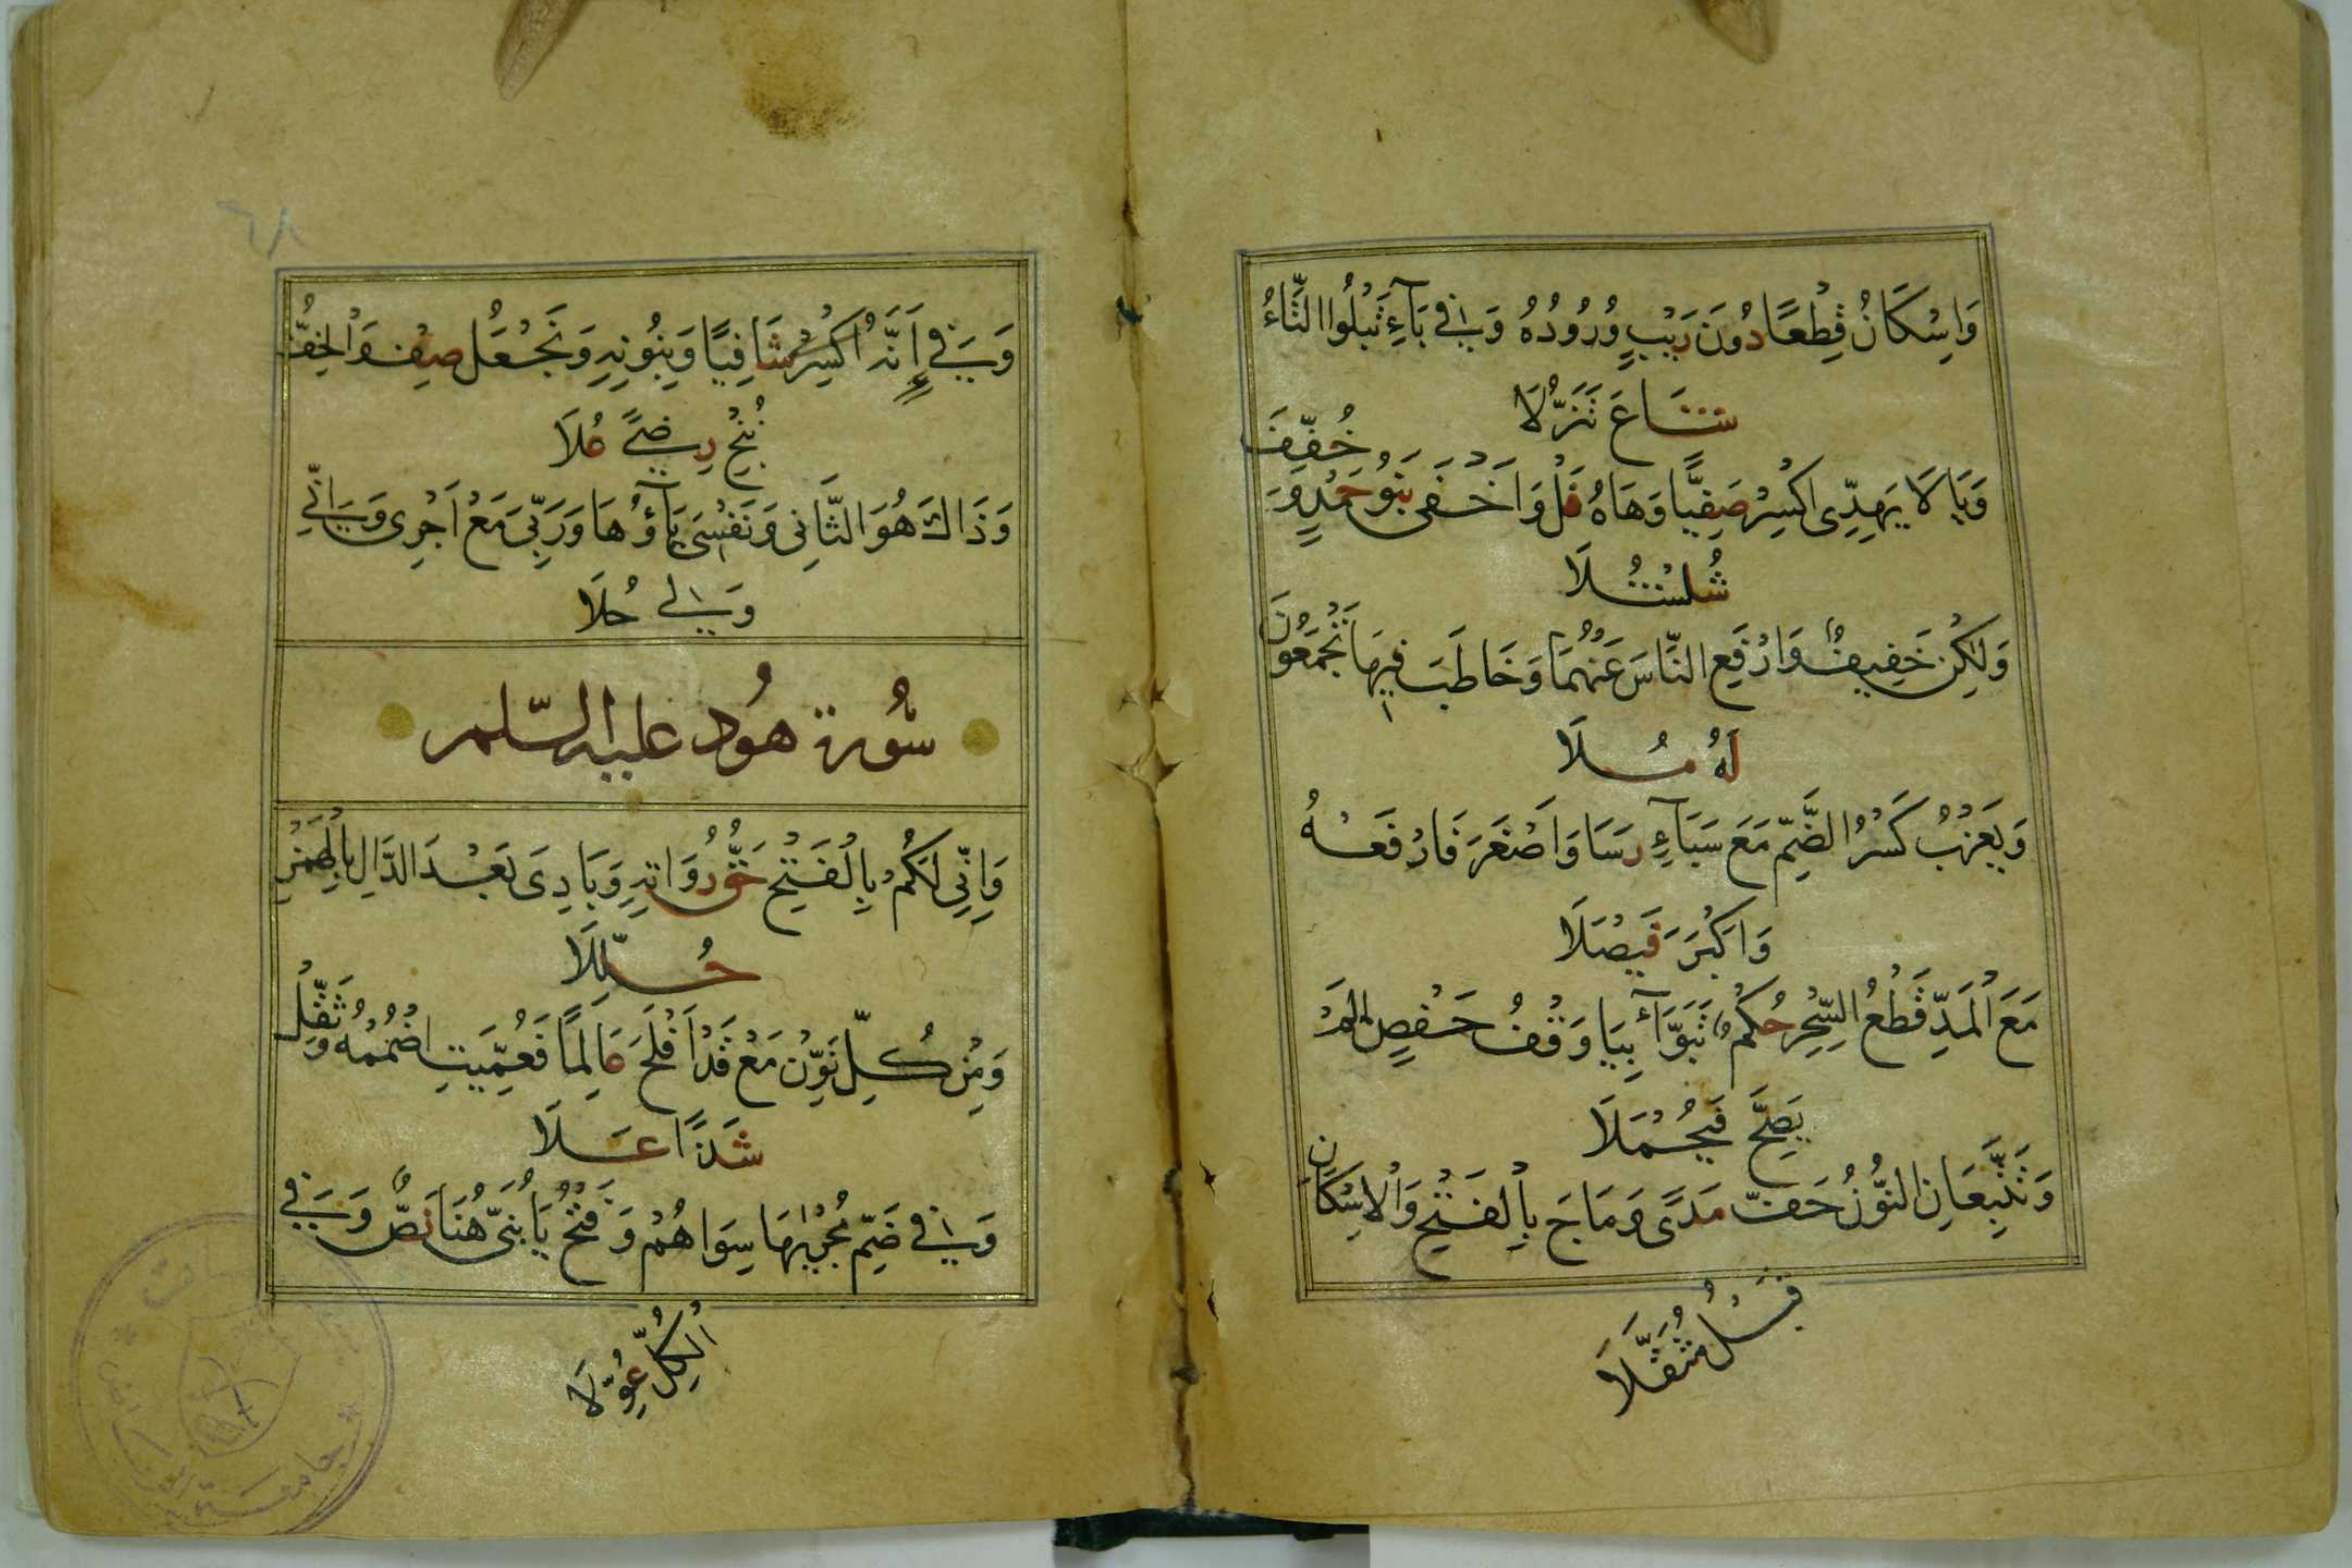 وَاِسْكَانُ قِطْعًا دُونَ رَيْبٍ وُرُودُهُ وَفِي بَآءِ تَبْلُوا التَّاءُ
شَاعَ تَنَزُّلَا
وَيَا لَا يَهِدِّى اكْسِرْ صَفِيًّا وَهَاهُ نَلْ وَاَخْفَى بَنُو حَمْدٍ وَخُفِّفَ
شُلْشُلَا
وَلٰكِنْ خَفِيفٌ وَارْفَعِ النَّاسَ عَنْهُمَا وَخَاطَبَ فِيهَا تَجْمَعُونَ
لَهُ مُلَا
وَيَعْزُبُ كَسْرُ الضَّمِّ مَعَ سَبَآءِ رَسَا وَاَصْغَرَ فَارْفَعْهُ
وَاَكْبَرَ فَيْصَلَا
مَعَ الْمَدِّ قَطْعُ السِّحْرِ حُكْمٌ تَبَوَّآ بِيَا وَقْفُ حَفْصٍ لَمْ
يَصِحَّ فَيُحْمَلَا
وَتَتَّبِعَانِ النُّونُ خَفَّ مَدًى وَمَاجَ بِالْفَتْحِ وَالْاِسْكَانِ
قَبْلُ مُثَقَّلَا
٦٨
وَفِي اَنَّهُ اكْسِرْ شَافِيًا وَبِنُونِهِ وَنَجْعَلُ صِفْ وَالْخِفُّ
نُنْجِ رِضًى عُلَا
وَذَاكَ هُوَ الثَّانِى وَنَفْسِىَ يَآؤُهَا وَرَبِّىَ مَعْ اَجْرِى وَاِنِّى
وَلِى حُلَا
سُورة هُود عليه السّلم
وَاِنِّى لَكُمْ بِالْفَتْحِ حَقُّ رُوَاتِهِ وَبَادِىَ بَعْدَ الدَّالِ بِالْهَمْزِ
حُلِّلَا
وَمِنْ كُلِّ نَوِّنْ مَعْ قَدْ اَفْلَحَ عَالِمًا فَعُمِّيَتِ اضْمُمْهُ وَثَقِّلْ
شَذًا عَلَا
وَفِي ضَمِّ مَجْرٰيهَا سِوَاهُمْ وَفَتْحُ يَا بُنَىَّ هُنَا نَصٌّ وَفِي
الْكُلِّ عُوِّلَا
جامعة